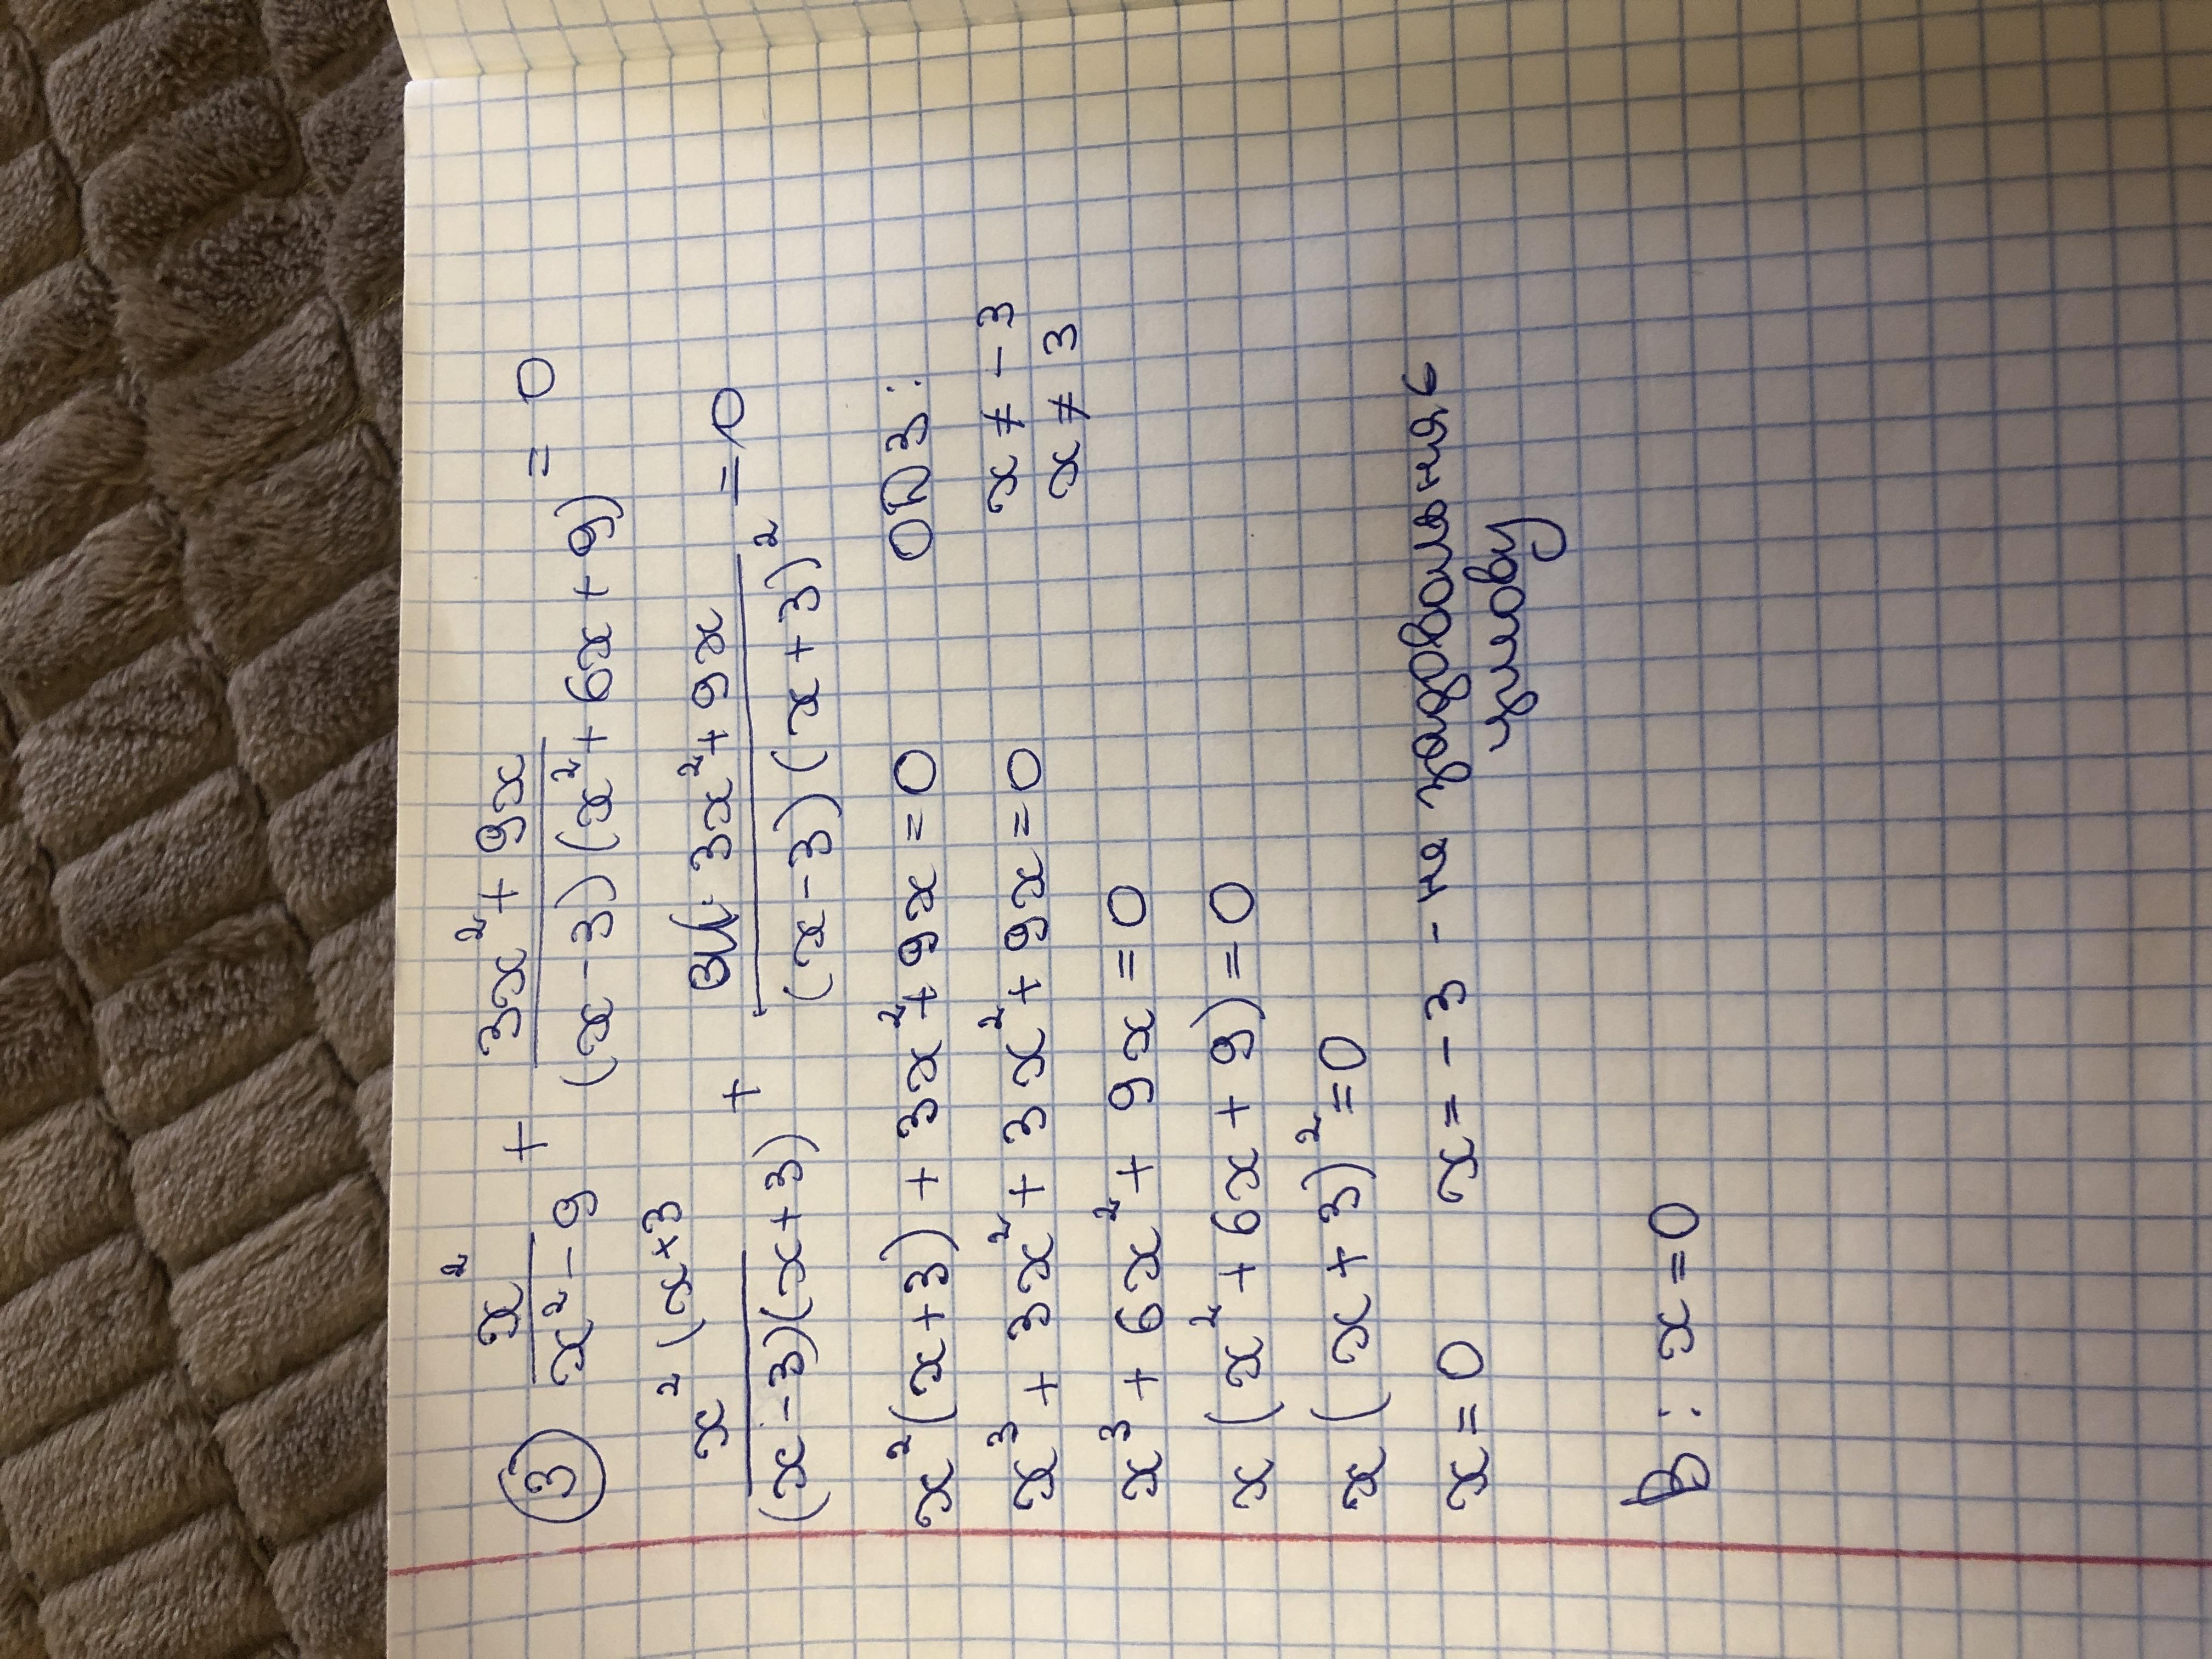 ③ x²/(x²-9) + (3x²+9x)/((x-3)(x²+6x+9)) = 0
x²(x+3)/((x-3)(x+3)) + (3x²+9x)/((x-3)(x+3)²) = 0
x²(x+3)+3x²+9x=0 ОДЗ:
x³+3x²+3x²+9x=0 x≠-3
x≠3
x³+6x²+9x=0
x(x²+6x+9)=0
x(x+3)²=0
x=0 x=-3 - не задовольняє
умову
В: x=0